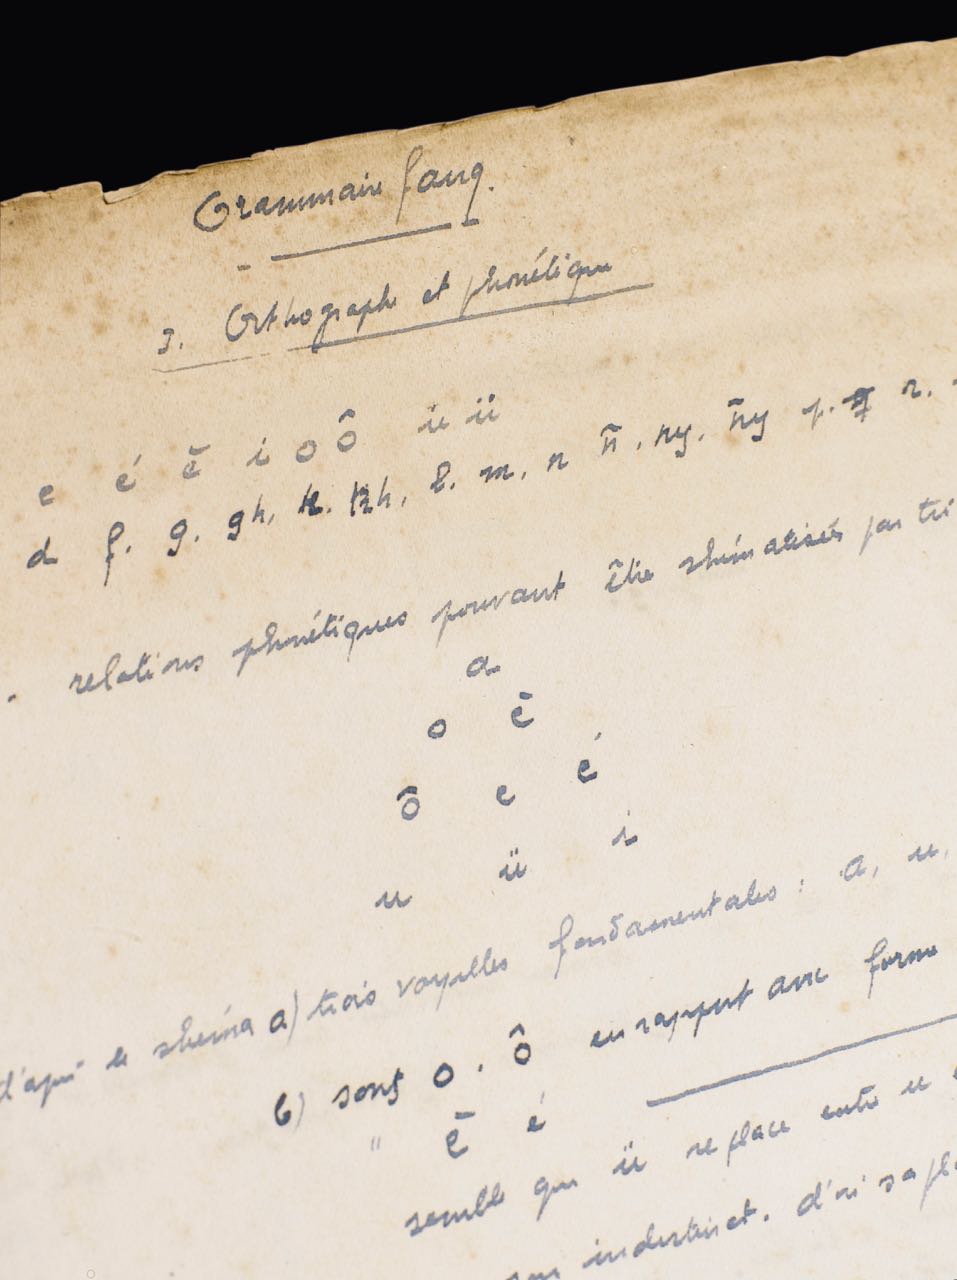 Grammaire fang.
3. Orthographe et phonétique
e é ē i o ô u ü
d f. g. gh. k. kh. l. m. n n̄. ny. n̄y p. r.
relations phonétiques pouvant être shématisés par
a
o ē
ô e é
u ü i
d'après le shéma a) trois voyelles fondamentales : a, u,
b) sons o . ô en rapport avec forme
" ē é
semble que ü se place entre u
son indistinct. d'où sa